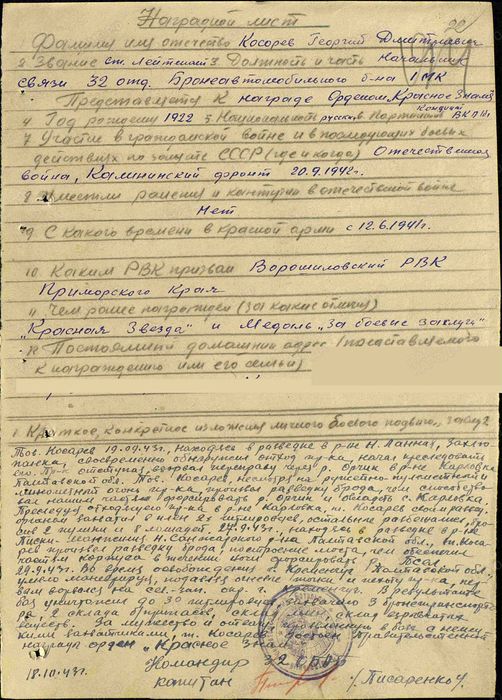 Наградной лист
Фамилия имя отчество Косарев Георгий Дмитриевич
2 Звание ст. Лейтенант 3 Должность и часть Начальник
связи 32 отд. Бронеавтомобильного б-на 1 МК
Представляется к награде Орденом Красное Знамя
4 Год рождения 1922 5 Национальность русский 6 Партийность Кандидат ВКП(б)
7 Участие в гражданской войне и в последующих боевых
действиях по защите СССР (где и когда) Отечественная
война, Калининский фронт 20.9.1942г.
8 Имеет ли ранения и контузии в отечественной войне
Нет
9 С какого времени в красной армии с 12.6.1941г.
10 Каким РВК призван Ворошиловский РВК
Приморского Края
11 Чем ранее награжден (за какие отличия)
"Красная Звезда" и Медаль "За боевые заслуги"
12 Постоянный домашний адрес (представляемого
к награждению или его семьи)
1 Краткое, конкретное изложение личного боевого подвига, заслуг
Тов. Косарев 19.09.43г. Находясь в разведке в р-не Н. Ланная,
своевременно обнаружил отход пр-ка, начал преследовать
его. Пр-к отступая, взорвал переправу через р. Орчик в р-не Карловка
Полтавской обл. Тов. Косарев, несмотря на ружейно-пулеметный и
минометный огонь пр-ка, произвел разведку брода, чем способство-
вал нашим частям форсировать р. Орчик и овладеть с. Карловка.
Преследуя отходящего пр-ка в р-не Карловка, т. Косарев своим
захватил в плен 2х гитлеровцев, остальные разбежались,
сив 2 пушки и 1 миномет. 24.9.43г. находясь в разведке в р-не
Н. Санжарского р-на Полтавской обл., т. Коса-
рев произвел разведку брода, построение моста, чем обеспечил
частям корпуса в течении ночи форсировать р. Псел.
29.9.43г. Во время освобождения г. Кременчуг Полтавской обл.,
умело маневрируя, подавляя огневые точки и пехоту пр-ка, пер-
вым ворвался на сев.-зап. окр. г. Кременчуг. В результате
боя уничтожено до 30 гитлеровцев, захвачено 3 бронетранспорте-
ра, 2 склада с имуществ. За мужество и отвагу, проявленную в боях с немец-
кими захватчиками, т. Косарев достоин правительственной
награды орден "Красное Знамя"
Командир 32 ОБАБ
18.10.43г. капитан /Писаренко/